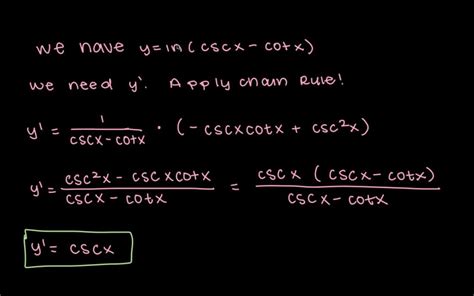 we have y=ln(cscx - cotx)
we need y'. Apply chain Rule!
y' = 1/(cscx - cotx) · (-cscxcotx + csc²x)
y' = (csc²x - cscxcotx)/(cscx - cotx) = (cscx (cscx - cotx))/(cscx - cotx)
y' = cscx